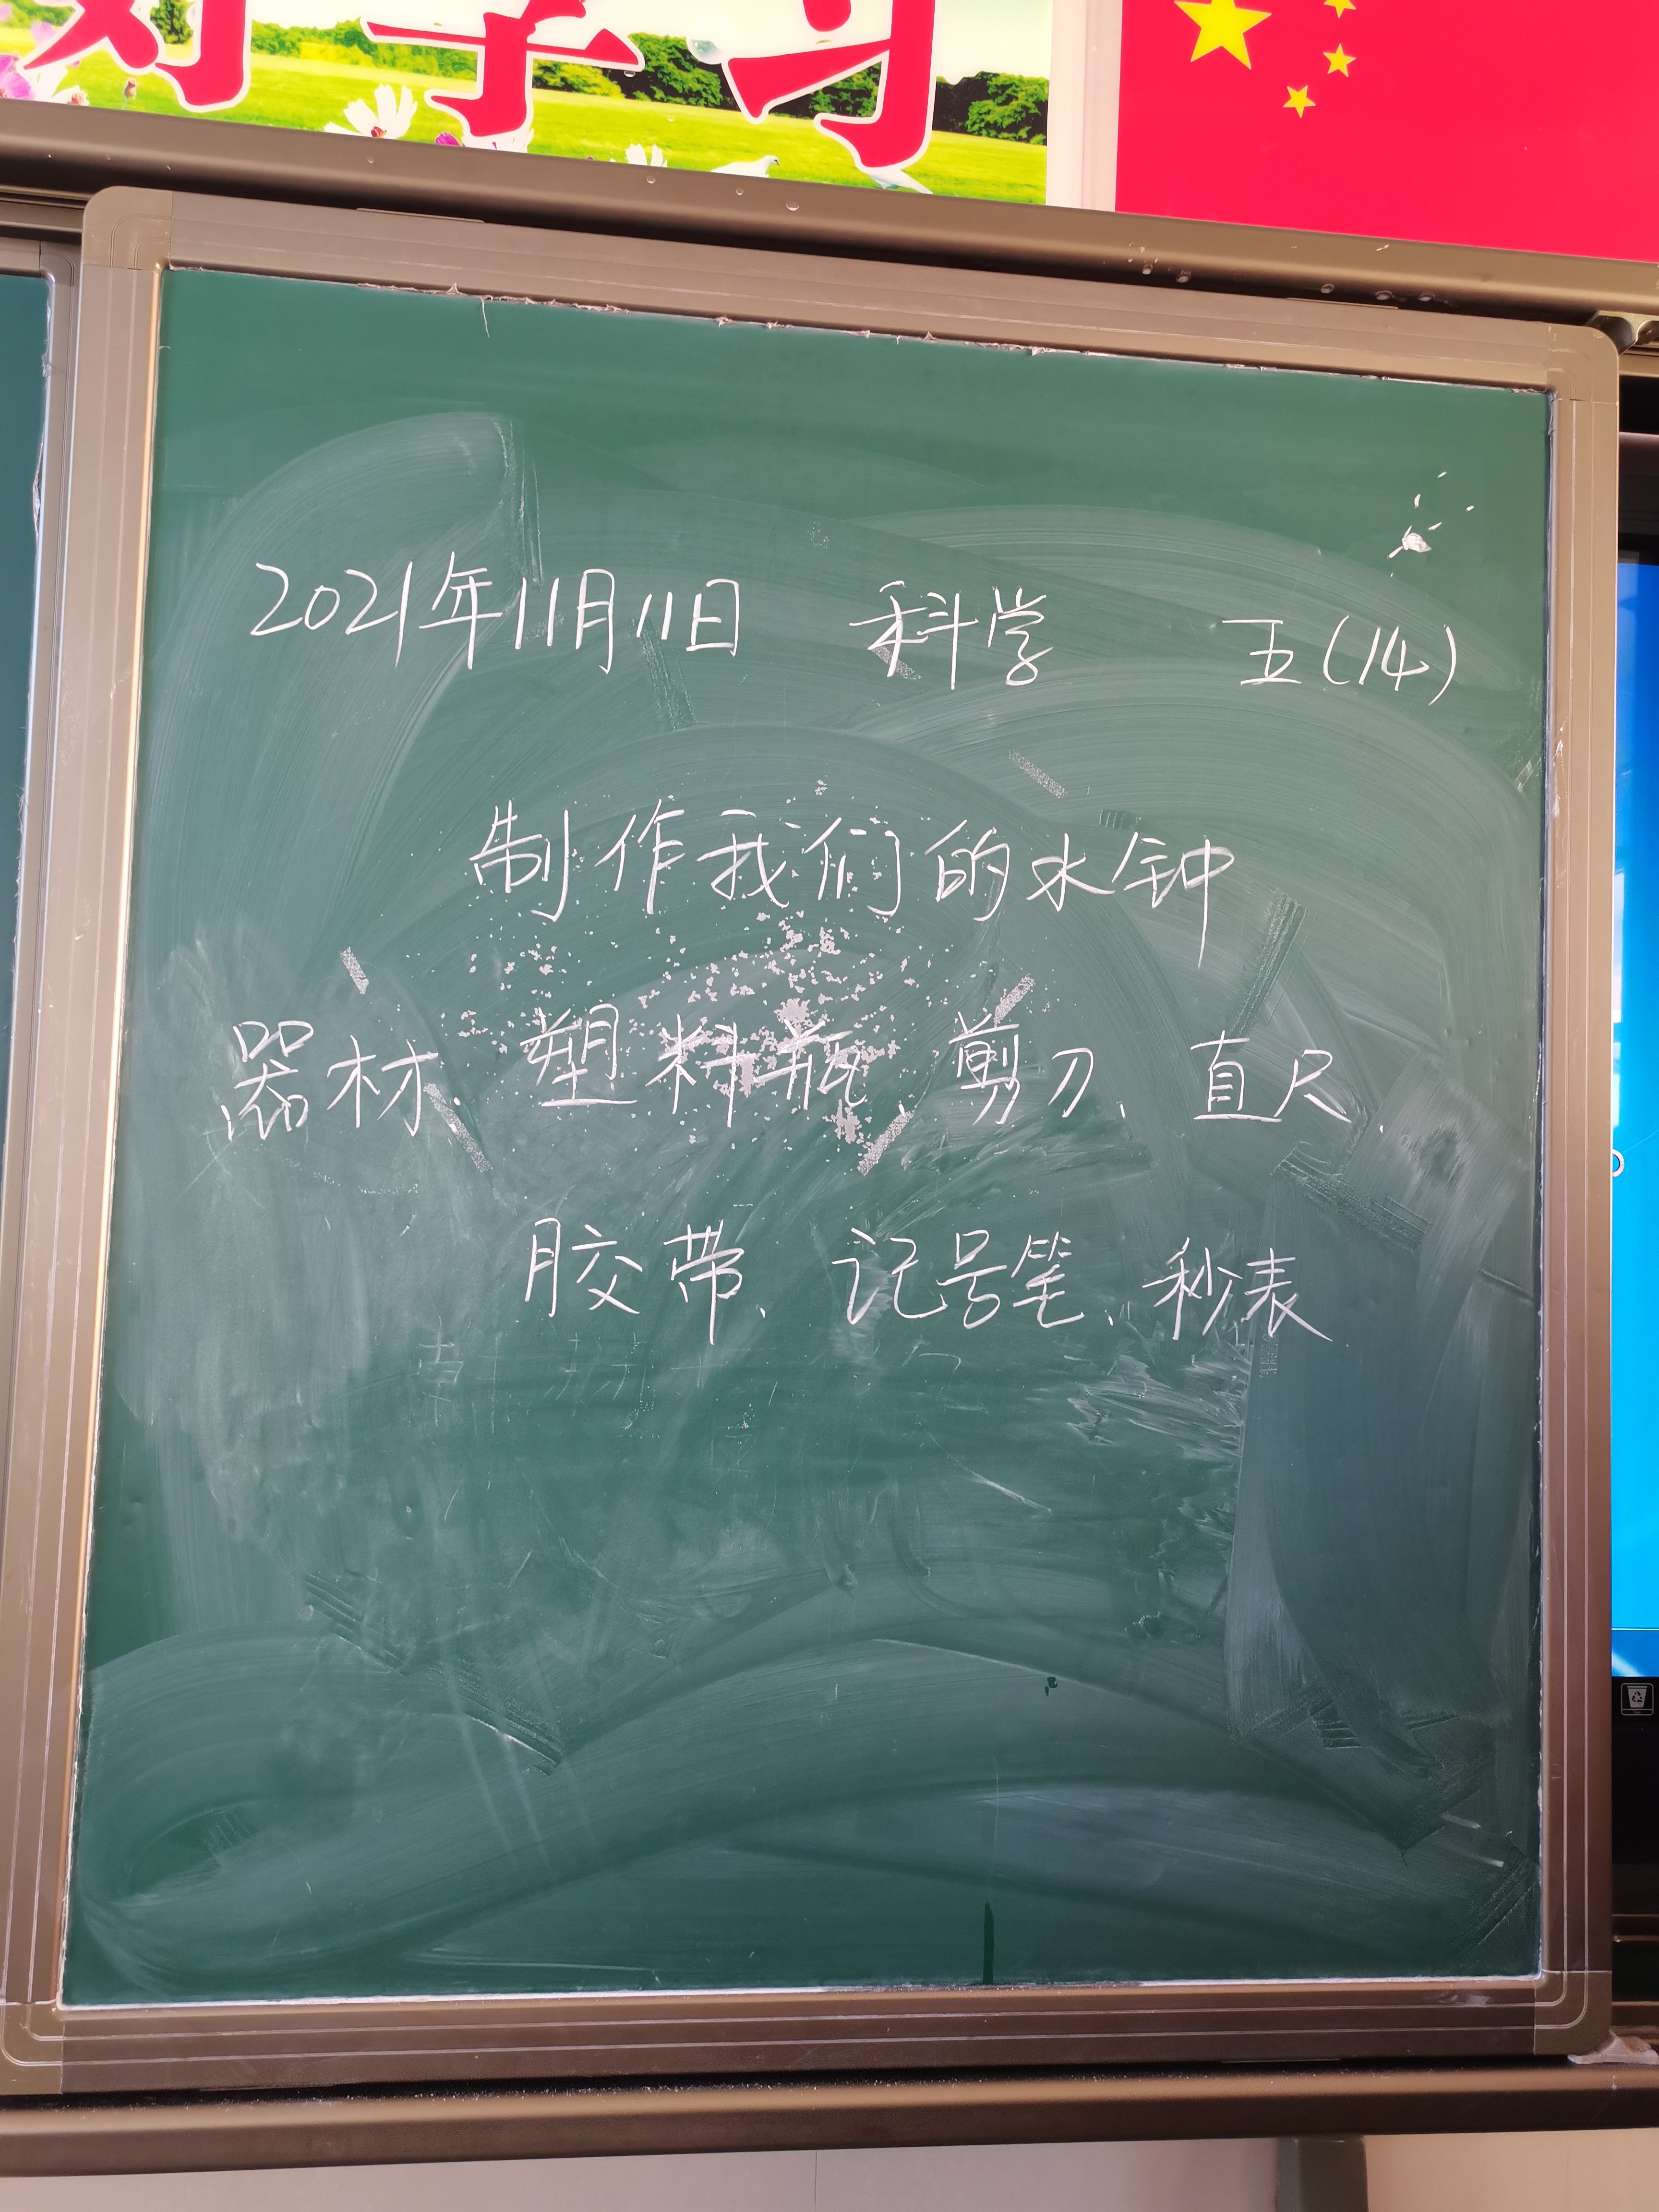 好学习
2021年11月11日 科学 五(14)
制作我们的水钟
器材、塑料瓶、剪刀、直尺、
胶带、记号笔、秒表